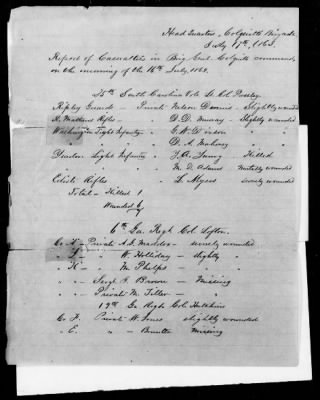 Head Quarters, Colquitt Brigade
July 17th, 1863.
Report of Casualties in Brig Genl. Colquitt command
on the morning of the 16th July, 1863.
South Carolina Vols Lt. Col.
Ripley Guards - Private Nelson Dennis - Slightly wounded
Rifles - " D. D. Murray - Slightly wounded
Washington Light Infantry " G. W. Dixon " "
" " " " D. A. Mahoney " "
Light Infantry " Young - Killed
" " " " M. D. Adams Mortally wounded
Rifles " L. Myers severely wounded
Total - Killed 1
Wounded 6
7
6th Ga. Regt Col. Lofton.
Co A - Private A. J. Maddox - severely wounded
" " W. Holliday - slightly "
" K - " M. Phelps - " "
" " - Sergt J. Brown - Missing
" " - Private M. Tiller - "
19th Ga Regt Col. Hutchins
Co F. Private W. Jones slightly wounded
" E. " Missing